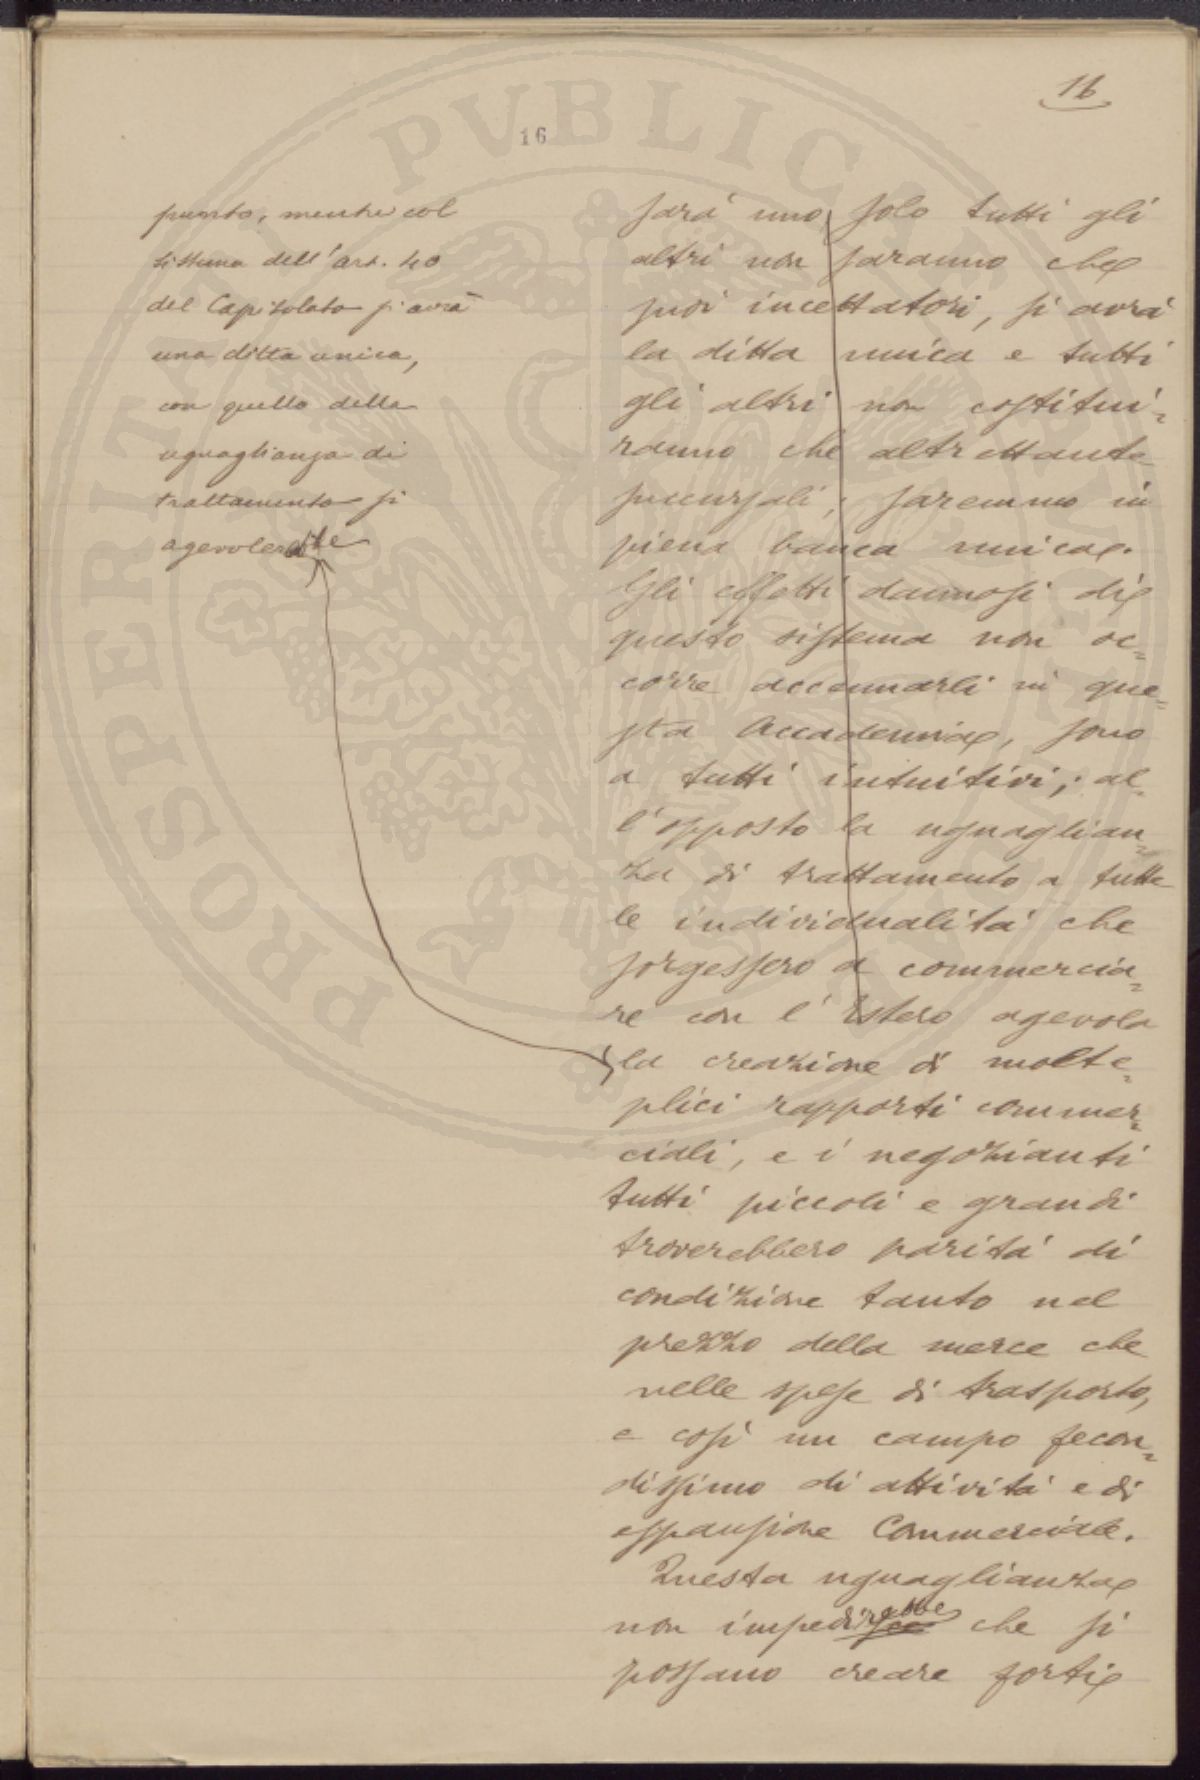 16
16
punto, mentre col
sistema dell'art. 40
del Capitolato si avrà
una ditta unica,
con quello della
uguaglianza di
trattamento si
agevolerebbe
sarà uno solo tutti gli
altri non saranno che
suoi incettatori, si avrà
la ditta unica e tutti
gli altri non costitui=
ranno che altrettante
succursali; saremmo in
piena banca unica.
Gli effetti dannosi di
questo sistema non oc=
corre accennarli in que=
sta Accademia, sono
a tutti intuitivi; al=
l'opposto la uguaglian=
za di trattamento a tutte
le individualità che
sorgessero a commercia=
re con l'Estero agevola
la creazione di molte=
plici rapporti commer=
ciali, e i negozianti
tutti piccoli e grandi
troverebbero parità di
condizione tanto nel
prezzo della merce che
nelle spese di trasporto,
e così un campo fecon=
dissimo di attività e di
espansione Commerciale.
Questa uguaglianza
non impedirebbe che si
possano creare forti
PROSPERITATI PVBLICAE